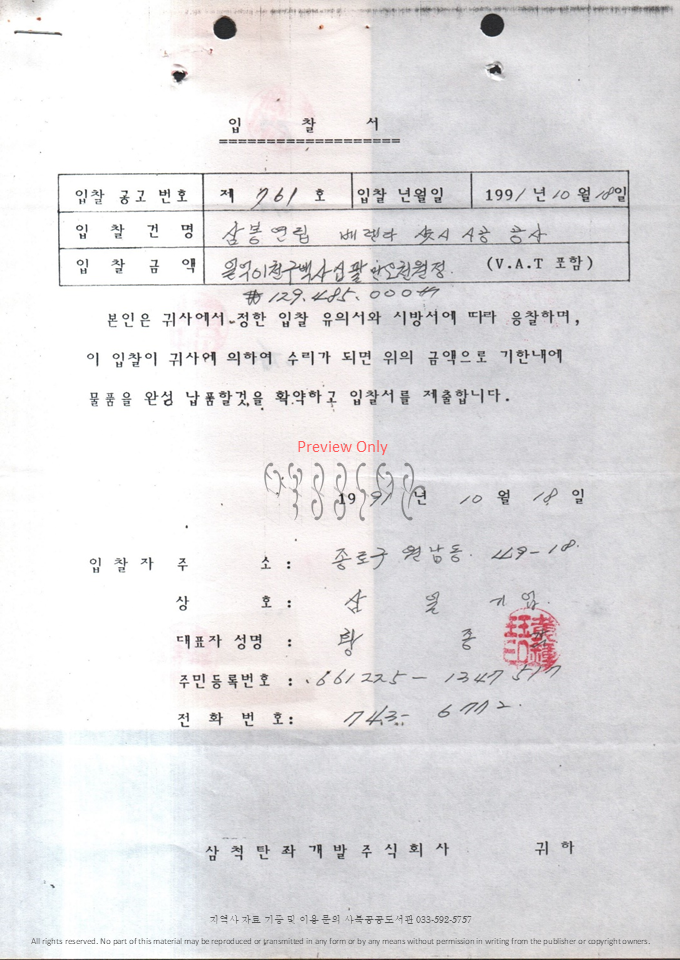 입 찰 서
입찰 공고 번호 제 761 호 입찰 년월일 1991 년 10 월 18일
입 찰 건 명 삼봉연립 베란다 샷시 시공 공사
입 찰 금 액 일억이천구백사십팔만오천원정. (V.A.T 포함)
₩129.485.000
본인은 귀사에서 정한 입찰 유의서와 시방서에 따라 응찰하며,
이 입찰이 귀사에 의하여 수리가 되면 위의 금액으로 기한내에
물품을 완성 납품할것을 확약하고 입찰서를 제출합니다.
Preview Only
1991 년 10 월 18 일
입찰자 주 소 : 종로구 원남동 49-18.
상 호 : 삼 일 기 업.
대표자 성명 : 황 종
주민등록번호 : 661225-1347517
전 화 번 호: 743- 6772.
삼척탄좌개발주식회사 귀하
지역사 자료 기증 및 이용 문의 사북공공도서관 033-592-5757
All rights reserved. No part of this material may be reproduced or transmitted in any form or by any means without permission in writing from the publisher or copyright owners.